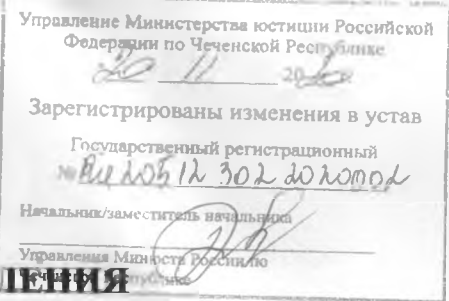 Управление Министерства юстиции Российской
Федерации по Чеченской Республике
20 11 2020
Зарегистрированы изменения в устав
Государственный регистрационный
№ RU 205 12 302 2020002
Начальник/заместитель начальника
Управления Минюста России по
Чеченской Республике
ЛЕНИЯ